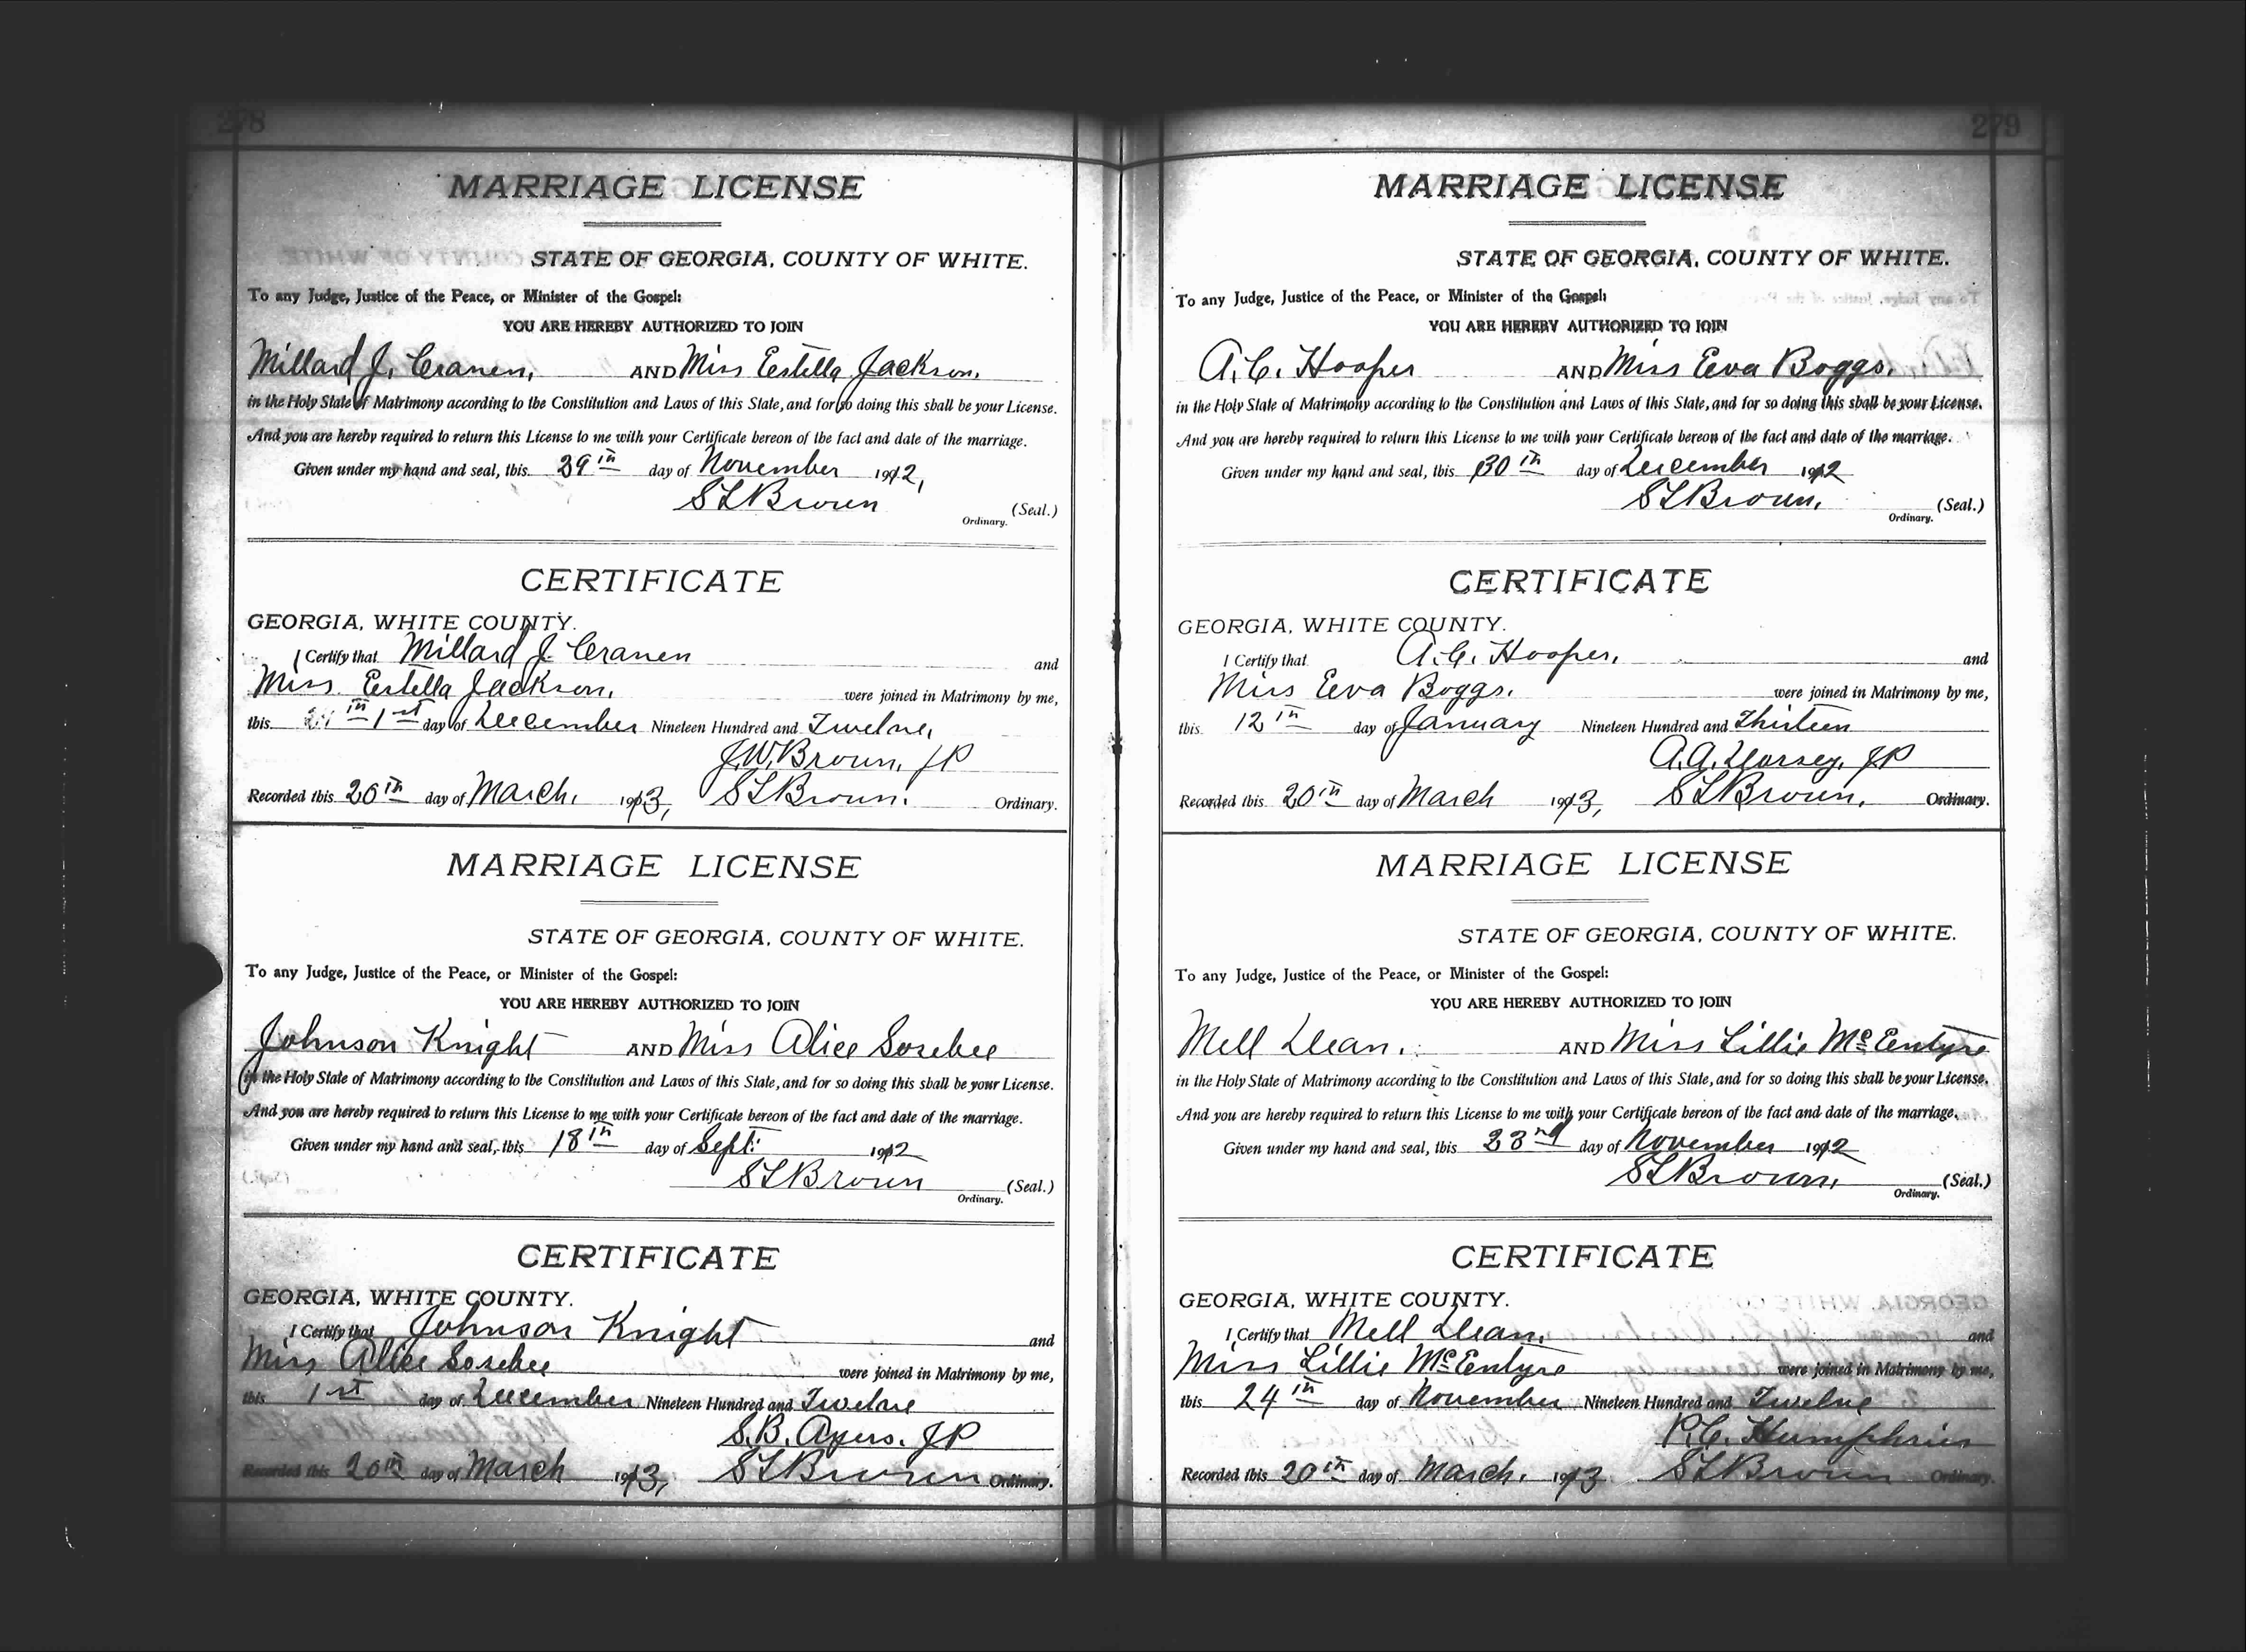 278
MARRIAGE LICENSE
STATE OF GEORGIA, COUNTY OF WHITE.
To any Judge, Justice of the Peace, or Minister of the Gospel:
YOU ARE HEREBY AUTHORIZED TO JOIN
Millard J. Craven, AND Miss Estella Jackson.
in the Holy State of Matrimony according to the Constitution and Laws of this State, and for so doing this shall be your License.
And you are hereby required to return this License to me with your Certificate hereon of the fact and date of the marriage.
Given under my hand and seal, this 29th day of November 1912,
S L Brown (Seal.)
Ordinary.
CERTIFICATE
GEORGIA, WHITE COUNTY.
I Certify that Millard J. Craven and
Miss Estella Jackson, were joined in Matrimony by me,
this 1st day of December Nineteen Hundred and Twelve,
J.W. Brown, JP
Recorded this 20th day of March, 1913, S L Brown. Ordinary.
MARRIAGE LICENSE
STATE OF GEORGIA, COUNTY OF WHITE.
To any Judge, Justice of the Peace, or Minister of the Gospel:
YOU ARE HEREBY AUTHORIZED TO JOIN
Johnson Knight AND Miss Alice Sosebee
in the Holy State of Matrimony according to the Constitution and Laws of this State, and for so doing this shall be your License.
And you are hereby required to return this License to me with your Certificate hereon of the fact and date of the marriage.
Given under my hand and seal, this 18th day of Sept. 1912
S L Brown (Seal.)
Ordinary.
CERTIFICATE
GEORGIA, WHITE COUNTY.
I Certify that Johnson Knight and
Miss Alice Sosebee were joined in Matrimony by me,
this 1st day of December Nineteen Hundred and Twelve
S.B. Ayers. JP
Recorded this 20th day of March 1913, S L Brown Ordinary.
279
MARRIAGE LICENSE
STATE OF GEORGIA, COUNTY OF WHITE.
To any Judge, Justice of the Peace, or Minister of the Gospel:
YOU ARE HEREBY AUTHORIZED TO JOIN
A.C. Hooper AND Miss Eva Boggs.
in the Holy State of Matrimony according to the Constitution and Laws of this State, and for so doing this shall be your License.
And you are hereby required to return this License to me with your Certificate hereon of the fact and date of the marriage.
Given under my hand and seal, this 30th day of December 1912
S L Brown, (Seal.)
Ordinary.
CERTIFICATE
GEORGIA, WHITE COUNTY.
I Certify that A.C. Hooper, and
Miss Eva Boggs. were joined in Matrimony by me,
this 12th day of January Nineteen Hundred and Thirteen
A.A. Dorsey, JP
Recorded this 20th day of March 1913, S L Brown, Ordinary.
MARRIAGE LICENSE
STATE OF GEORGIA, COUNTY OF WHITE.
To any Judge, Justice of the Peace, or Minister of the Gospel:
YOU ARE HEREBY AUTHORIZED TO JOIN
Mell Dean. AND Miss Lillie McEntyre
in the Holy State of Matrimony according to the Constitution and Laws of this State, and for so doing this shall be your License.
And you are hereby required to return this License to me with your Certificate hereon of the fact and date of the marriage.
Given under my hand and seal, this 23rd day of November 1912
S L Brown, (Seal.)
Ordinary.
CERTIFICATE
GEORGIA, WHITE COUNTY.
I Certify that Mell Dean, and
Miss Lillie McEntyre were joined in Matrimony by me,
this 24th day of November Nineteen Hundred and Twelve
P.C. Humphries
Recorded this 20th day of March, 1913 S L Brown Ordinary.